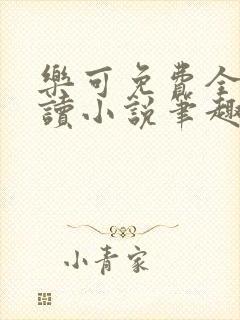 樂可免費全
讀小說筆趣
小青家